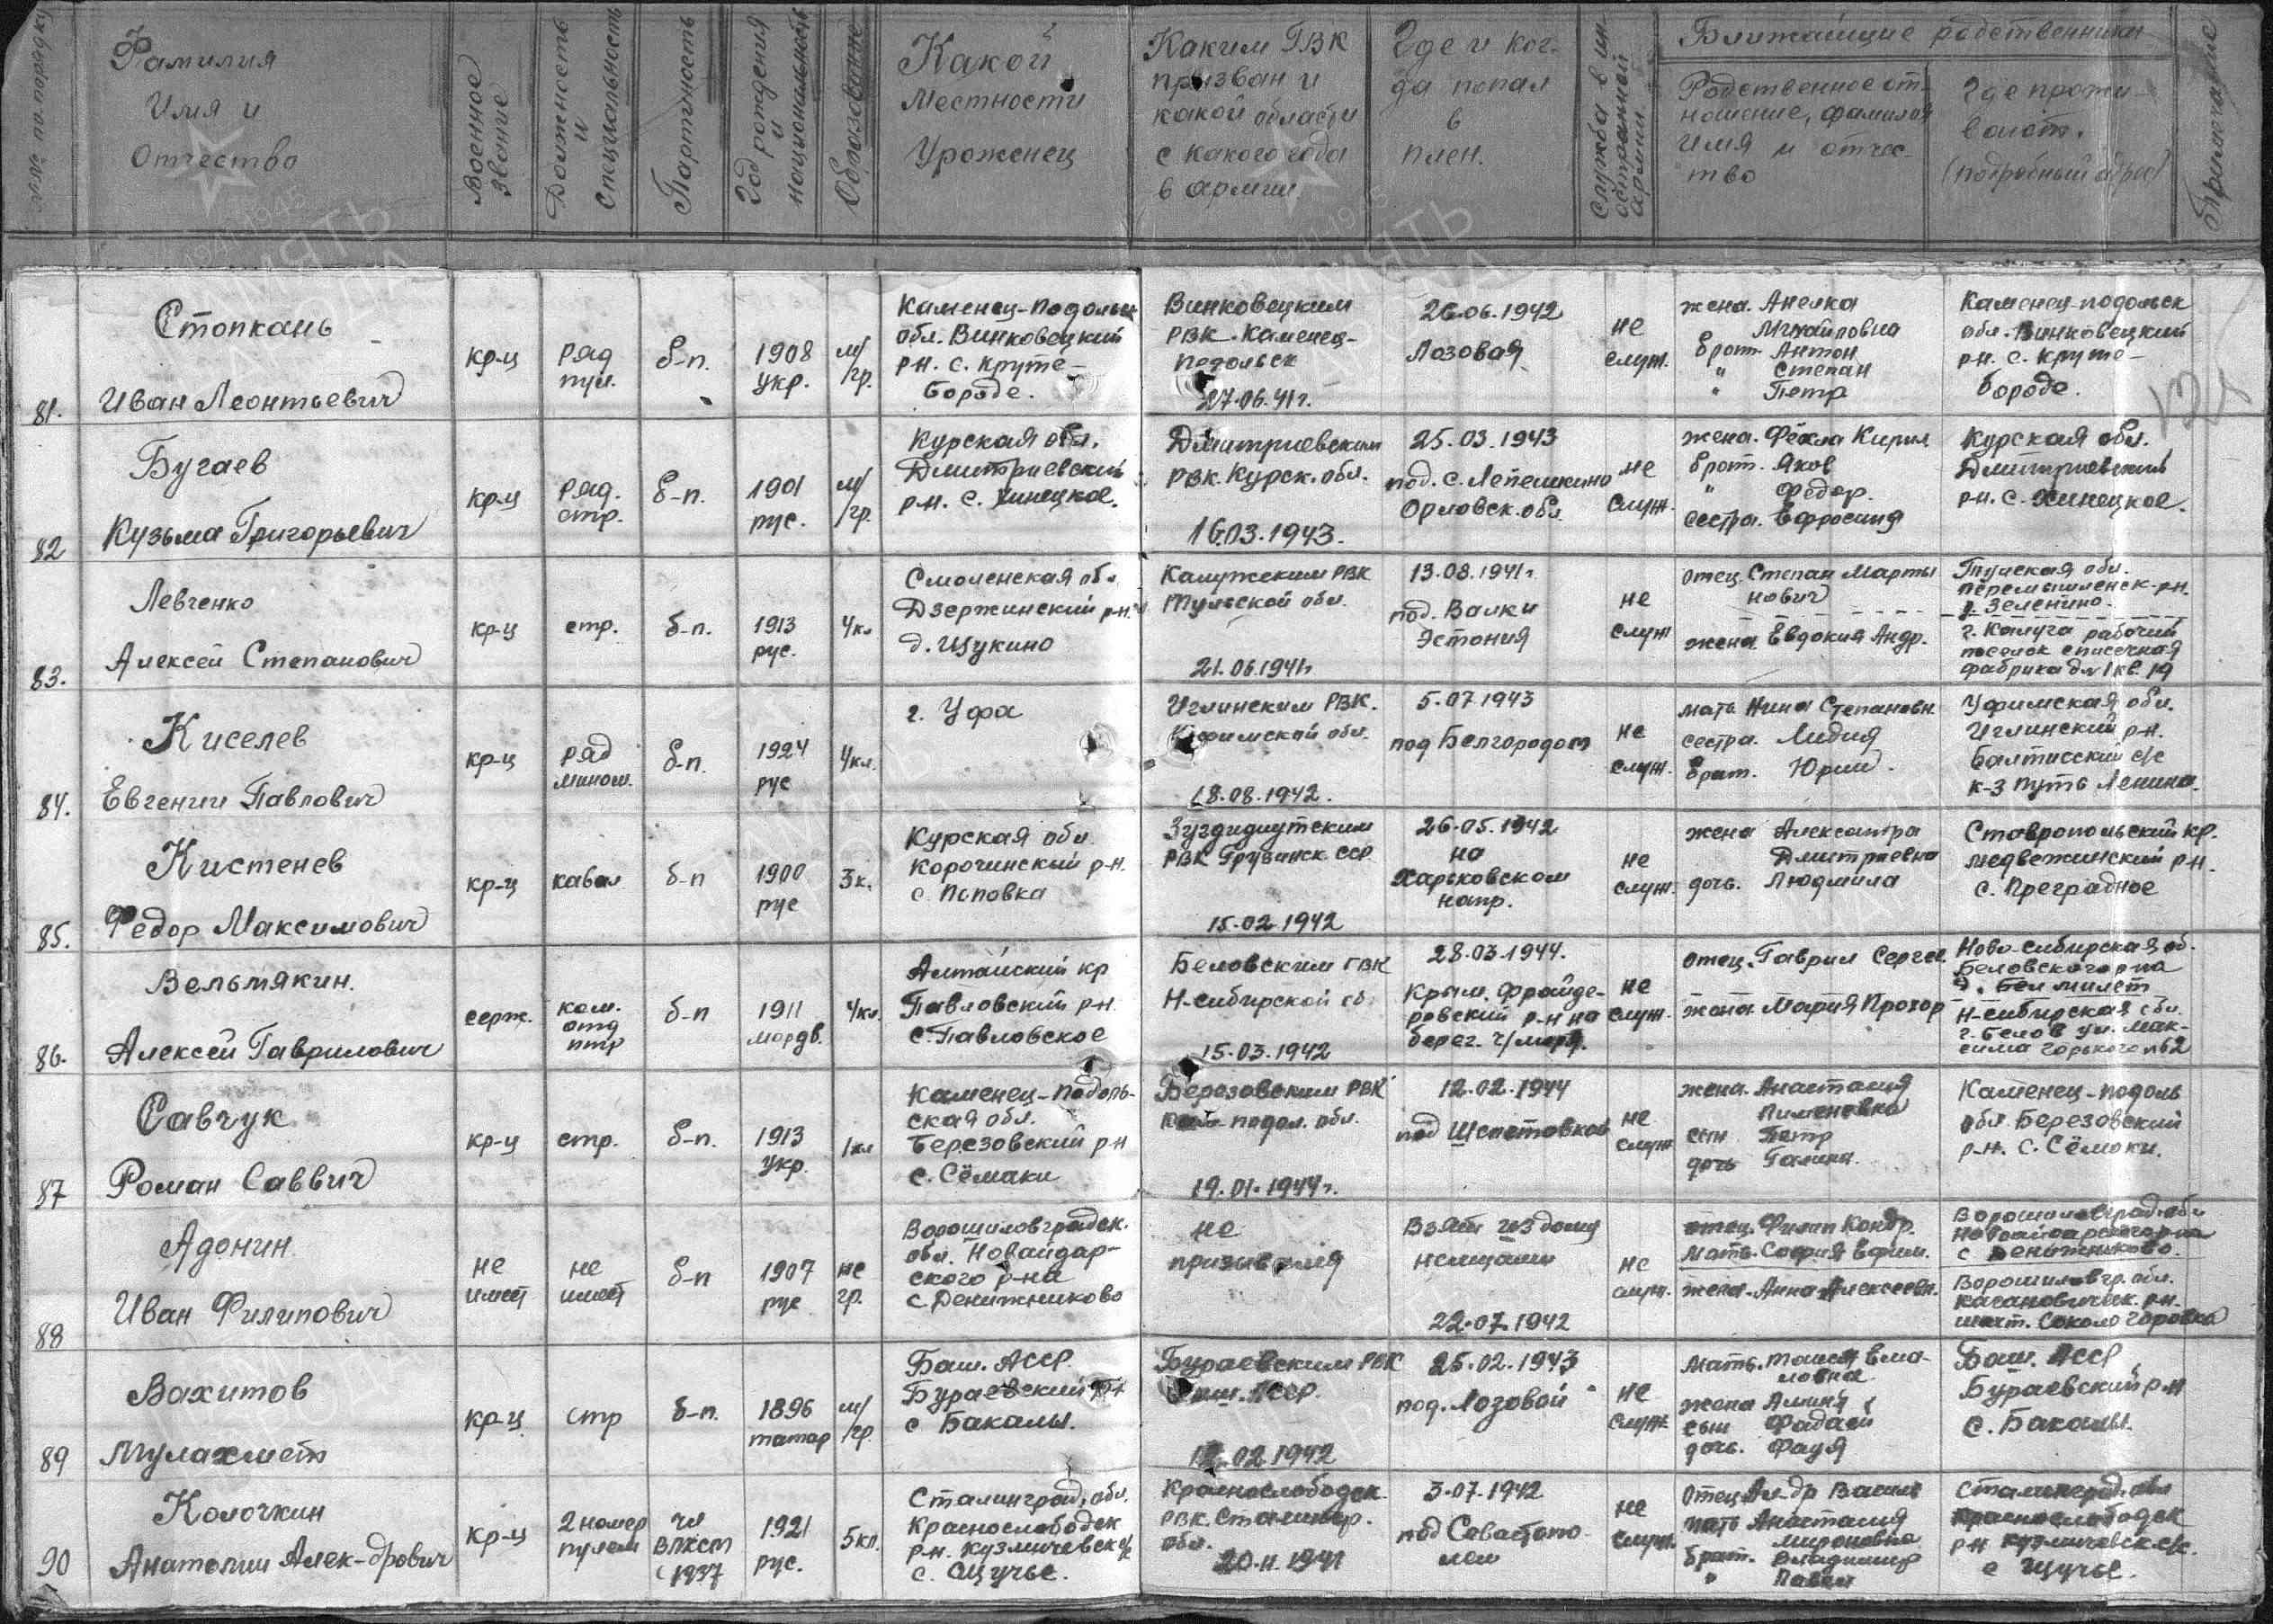 №№ по порядку
Фамилия
Имя и
Отчество
Военное
звание
Должность
и
Специальность
Партийность
Год рождения
и
национальность
Образование
Какой
Местности
Уроженец
Каким РВК
призван и
какой области
с какого года
в армии
Где и ког-
да попал
в
плен.
Служба в ин
остранной
армии
Ближайшие родственники
Родственное от-
ношение, фамилия
имя и отчес-
тво
Где прожи-
вают.
(подробный адрес)
Примечание
81.
Стопкань
Иван Леонтьевич
кр-ц
ряд
пул.
б-п.
1908
укр.
м/
гр.
Каменец-Подольск
обл. Винковецкий
р-н. с. Круте-
бороде.
Винковецким
РВК. Каменец-
Подольск
27.06.41 г.
26.06.1942
Лозовая
не
служ.
жена. Анелка
Михайловна
брат. Антон
" Степан
" Петр
Каменец-подольск
обл. Винковецкий
р-н. с. Круте-
бороде.
82
Бугаев
Кузьма Григорьевич
кр-ц
ряд.
стр.
б-п.
1901
рус.
м/
гр.
Курская обл.
Дмитриевский
р-н. с. Хинецкое.
Дмитриевским
РВК. Курск. обл.
16.03.1943.
25.03.1943
под. с. Лепешкино
Орловск. обл.
не
служ.
жена. Фёкла Кирил
брат. Яков
" Федор.
сестра. Ефросиния
Курская обл.
Дмитриевский
р-н. с. Хинецкое.
83.
Левченко
Алексей Степанович
кр-ц
стр.
б-п.
1913
рус.
4кл
Смоленская обл.
Дзержинский р-н.
д. Щукино
Калужским РВК
Тульской обл.
21.06.1941г
13.08.1941г
под. Валки
Эстония
не
служ
отец. Степан Марты
нович
жена Евдокия Андр.
Тульская обл.
Перемышленск-р-н.
д. Зеленино.
г. Калуга рабочий
поселок спичечная
фабрика дм 1 кв. 19
84.
Киселев
Евгений Павлович
кр-ц
ряд
мином.
б-п.
1924
рус
4кл.
г. Уфа
Иглинским РВК.
Уфимской обл.
18.08.1942.
5.07.1943
под Белгородом
не
служ.
мать Нина Степановн.
сестра. Лидия
брат. Юрий.
Уфимская обл.
Иглинский р-н.
Балтийский с/с
к-з Путь Ленина.
85.
Кистенев
Федор Максимович
кр-ц
кавал
б-п
1900
рус
3к.
Курская обл.
Корочинский р-н.
с. Поповка
Зугдидиутским
РВК Грузинск. ССР
15.02.1942
26.05.1942
на
Харьковском
напр.
не
служ.
жена Александра
Дмитриевна
дочь. Людмила
Ставропольский кр.
медвежинский р-н.
с. Преградное
86.
Вельмякин.
Алексей Гаврилович
серж.
ком.
отд
птр
б-п
1911
мордв.
4кл.
Алтайский кр
Павловский р-н
с. Павловское
Беловским ГВК
Н-сибирской об.
15.03.1942
28.03.1944.
Крым. Фрайде-
ровский р-н на
берег. ч/моря.
не
служ.
отец. Гаврил Сергее.
жена. Мария Прохор
Ново-сибирская об.
Беловского р-на
Н-сибирская обл.
г. Белов ул. Мак-
сима Горького №62
87
Савчук
Роман Саввич
кр-ц
стр.
б-п.
1913
укр.
1кл
Каменец-Подоль-
ская обл.
Березовский р-н
с. Сёмаки
Березовским РВК
Кам-подол. обл.
19.01.1944г.
12.02.1944
под Шепетовкой
не
служ
жена. Анастасия
Пименовна
сын Петр
дочь Галина.
Каменец-подоль
обл. Березовский
р-н. с. Сёмаки.
88
Адонин
Иван Филипович
не
имеет
не
имеет
б-п
1907
рус
не
гр.
Ворошиловградск.
обл. Новайдар-
ского р-на
с. Денижниково
не
призывался
Взяты из дому
немцами
22.07.1942
не
служ.
отец. Филип Кондр.
мать. София Ефим.
жена. Анна Алексеевн.
Ворошиловград. обл
Новайдарского р-на
с Денижниково.
Ворошиловгр. обл.
Кагановическ. р-н.
шахт. Сокологоровка
89
Вахитов
Мулахмет
кр-ц
стр
б-п.
1896
татар
м/
гр.
Баш. АССР.
Бураевский р-н
с Бакалы.
Бураевским РВК
Баш. АССР.
12.02.1942
25.02.1943
под. Лозовой
не
служ.
жена Алиня
сын Фадаей
дочь. Фауя
Баш. АССР
Бураевский р-н
с. Бакалы.
90
Колочкин
Анатолий Алек-дрович
кр-ц
2 номер
пулем
чл
ВЛКСМ
с 1937
1921
рус.
5кл.
Сталинград. обл.
Краснослободск
р-н. Кузмичевск с/с
с. Щучье.
Краснослободск.
РВК. Сталингр.
обл.
20.11.1941
3.07.1942
под Севастопо-
лем
не
служ.
Отец Ал-др Василь
мать Анастасия
Мироновна
брат. Владимир
" Павел
Сталинград. обл
Краснослободск
р-н Кузмичевск с/с.
с Щучье.